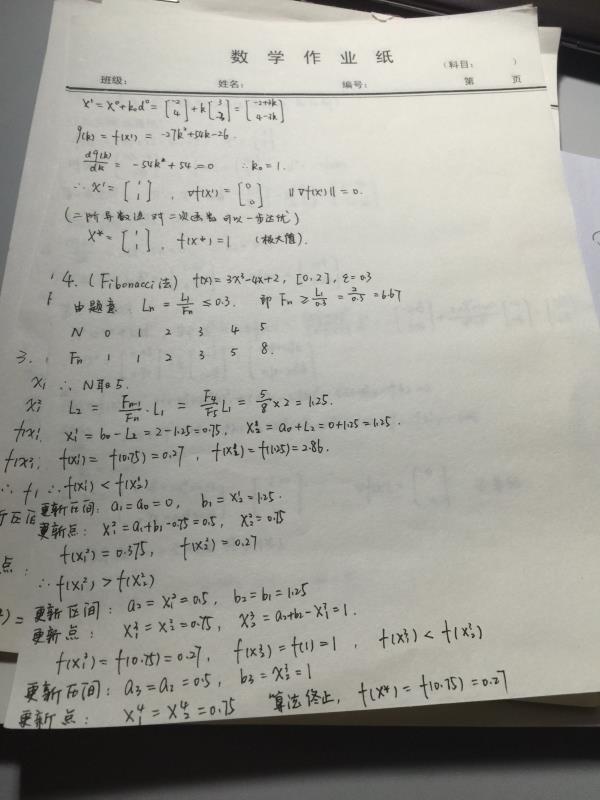 数 学 作 业 纸
(科目: )
班级: 姓名: 编号: 第 页
X¹ = X⁰ + k₀d⁰ = [-2 4] + k[3 -3] = [-2+3k 4-3k]
φ(k) = f(X¹) = -27k²+54k-26.
dφ(k)/dk = -54k+54 = 0 ∴ k₀ = 1.
∴ X¹ = [1 1], ∇f(X¹) = [0 0] ||∇f(X¹)|| = 0.
(二阶导数法对二次函数可以一步达优)
X* = [1 1], f(X*) = 1 (极大值).
4. (Fibonacci法) f(x) = 3x³-4x+2, [0,2], ε=0.3
由题意: Ln = L₁/Fn ≤ 0.3. 即 Fn ≥ L₁/0.3 = 2/0.3 = 6.67
N 0 1 2 3 4 5
3. Fn 1 1 2 3 5 8.
X₁ ∴ N取5.
X₂² L₂ = Fn-1/Fn · L₁ = F₄/F₅ L₁ = 5/8 × 2 = 1.25.
f(X₁²: X₁¹ = b₀-L₂ = 2-1.25 = 0.75, X₂¹ = a₀+L₂ = 0+1.25 = 1.25.
f(X₂²: f(X₁¹) = f(0.75) = 0.27, f(X₂¹) = f(1.25) = 2.86.
∴ f₁ ∴ f(X₁¹) < f(X₂¹)
新区间 更新区间: a₁ = a₀ = 0, b₁ = X₂¹ = 1.25.
更新点: X₁² = a₁+b₁-0.75 = 0.5, X₂² = 0.75
点: f(X₁²) = 0.375, f(X₂²) = 0.27
∴ f(X₁²) > f(X₂²)
²) = 更新区间: a₂ = X₁² = 0.5, b₂ = b₁ = 1.25
更新点: X₁³ = X₂² = 0.75, X₂³ = a₂+b₂-X₁³ = 1.
f(X₁³) = f(0.75) = 0.27, f(X₂³) = f(1) = 1, f(X₁³) < f(X₂³)
更新区间: a₃ = a₂ = 0.5, b₃ = X₂³ = 1
更新点: X₁⁴ = X₂⁴ = 0.75 算法终止, f(X*) = f(0.75) = 0.27